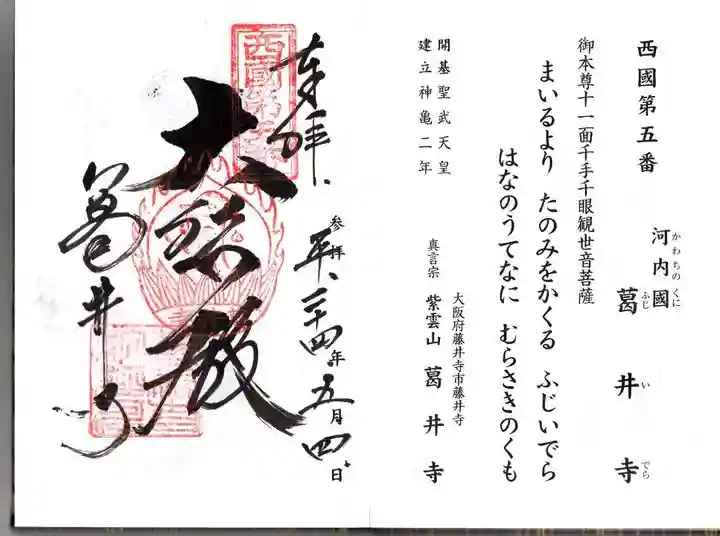 西國第五番
河内國 葛井寺
かわちのくに ふじいでら
御本尊十一面千手千眼観世音菩薩
まいるより たのみをかくる ふじいでら
はなのうてなに むらさきのくも
開基聖武天皇
建立神亀二年
大阪府藤井寺市藤井寺
真言宗 紫雲山 葛井寺
奉拝
参拝 平二十四年五月四日
西國第五番
大悲殿
葛井寺